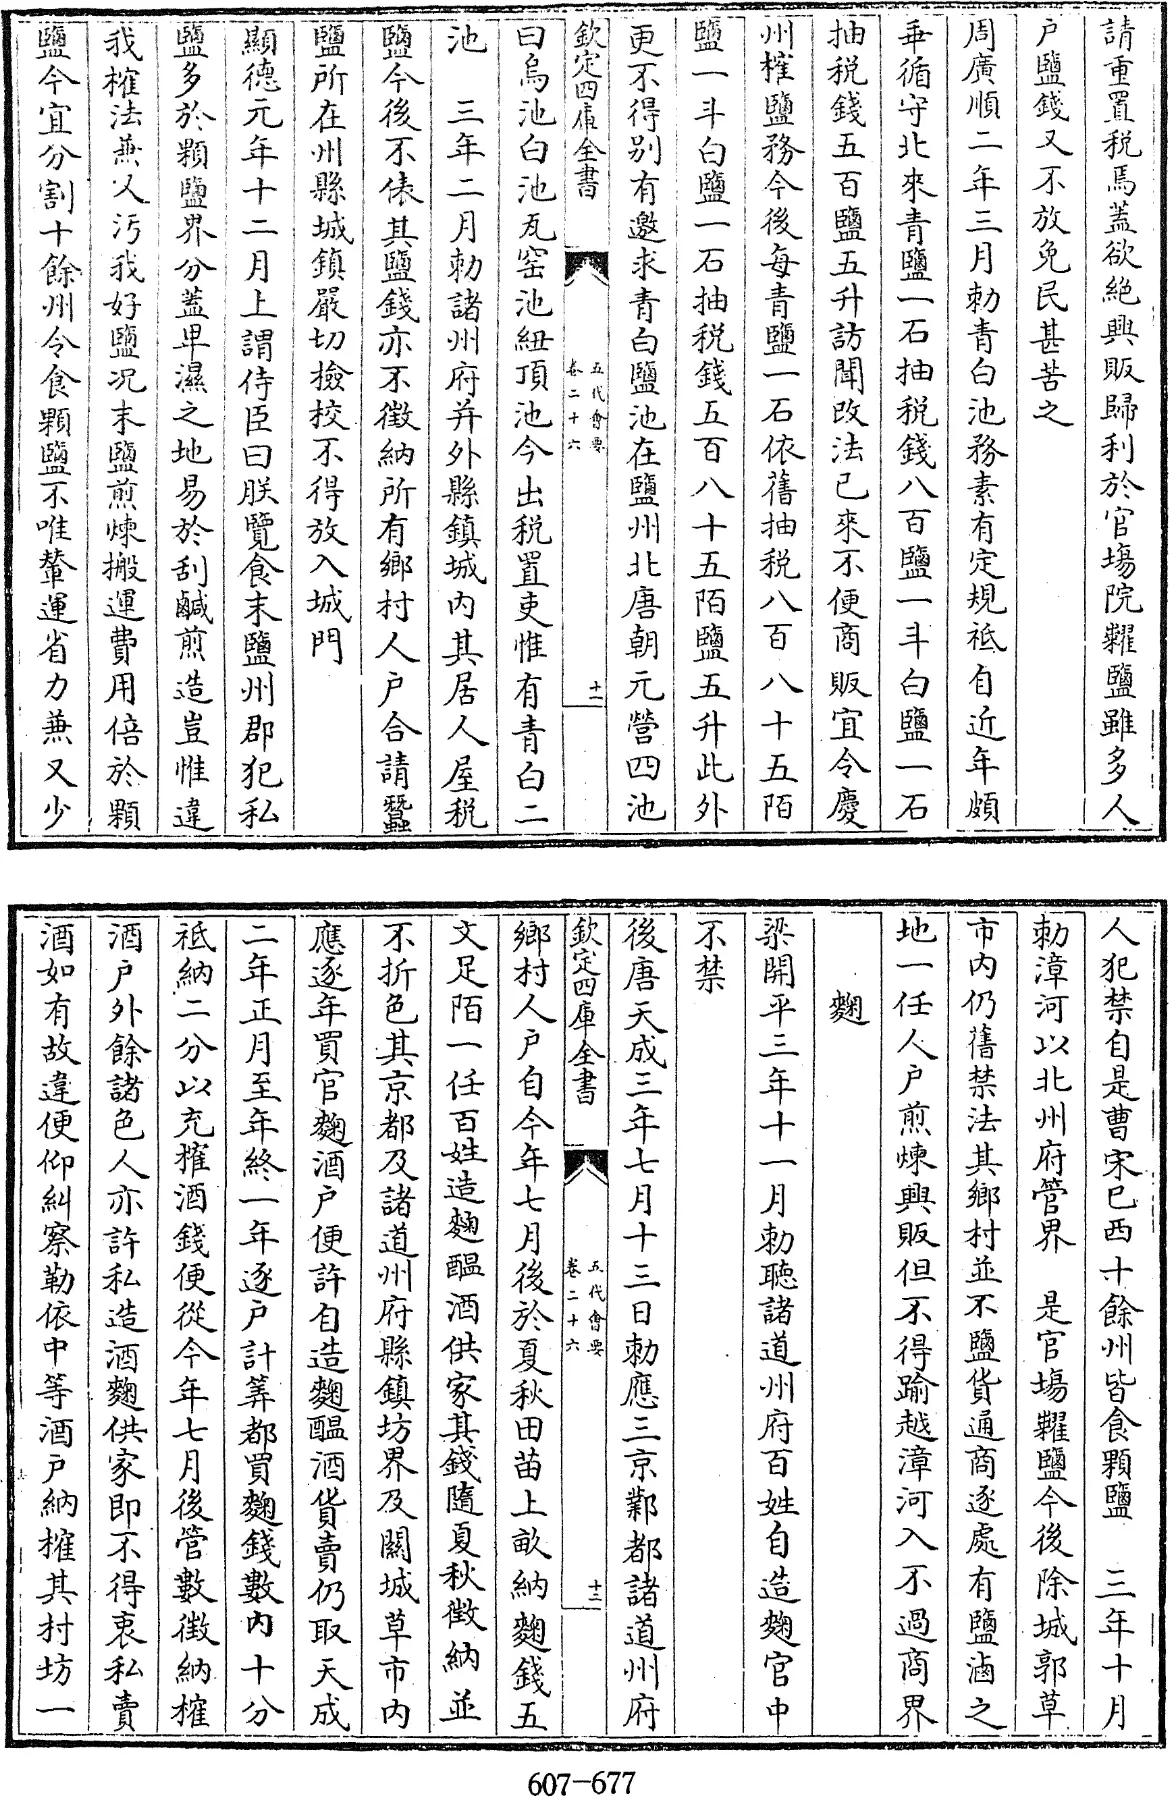 請重置税焉蓋欲絶興販歸利於官塲院糶鹽雖多人
户鹽錢又不放免民甚苦之
周廣順二年三月勅青白池務素有定規祗自近年頗
乖循守北來青鹽一石抽税錢八百鹽一斗白鹽一石
抽税錢五百鹽五升訪聞改法已來不便商販宜令慶
州榷鹽務今後每青鹽一石依舊抽税八百八十五陌
鹽一斗白鹽一石抽税錢五百八十五陌鹽五升此外
更不得别有邀求青白鹽池在鹽州北唐朝元營四池
欽定四庫全書
五代會要
卷二十六
十二
曰烏池白池瓦窑池紐頂池今出税置吏惟有青白二
池　三年二月勅諸州府并外縣鎮城内其居人屋税
鹽今後不俵其鹽錢亦不徵納所有鄉村人户合請蠶
鹽所在州縣城鎮嚴切檢校不得放入城門
顯德元年十二月上謂侍臣曰朕覽食末鹽州郡犯私
鹽多於顆鹽界分蓋卑濕之地易於刮鹹煎造豈惟違
我榷法兼又汚我好鹽况末鹽煎煉搬運費用倍於顆
鹽今宜分割十餘州令食顆鹽不唯輦運省力兼又少
人犯禁自是曹宋已西十餘州皆食顆鹽　三年十月
勅漳河以北州府管界　是官塲糶鹽今後除城郭草
市内仍舊禁法其鄉村並不鹽貨通商逐處有鹽滷之
地一任人户煎煉興販但不得踰越漳河入不過商界
麴
梁開平三年十一月勅聽諸道州府百姓自造麴官中
不禁
後唐天成三年七月十三日勅應三京鄴都諸道州府
欽定四庫全書
五代會要
卷二十六
十三
鄉村人户自今年七月後於夏秋田苗上畝納麴錢五
文足陌一任百姓造麴醖酒供家其錢隨夏秋徵納並
不折色其京都及諸道州府縣鎮坊界及關城草市内
應逐年買官麴酒户便許自造麴醖酒貨賣仍取天成
二年正月至年終一年逐户計筭都買麴錢數内十分
祗納二分以充榷酒錢便從今年七月後管數徵納榷
酒户外餘諸色人亦許私造酒麴供家即不得衷私賣
酒如有故違便仰糾察勒依中等酒户納榷其村坊一
607-677